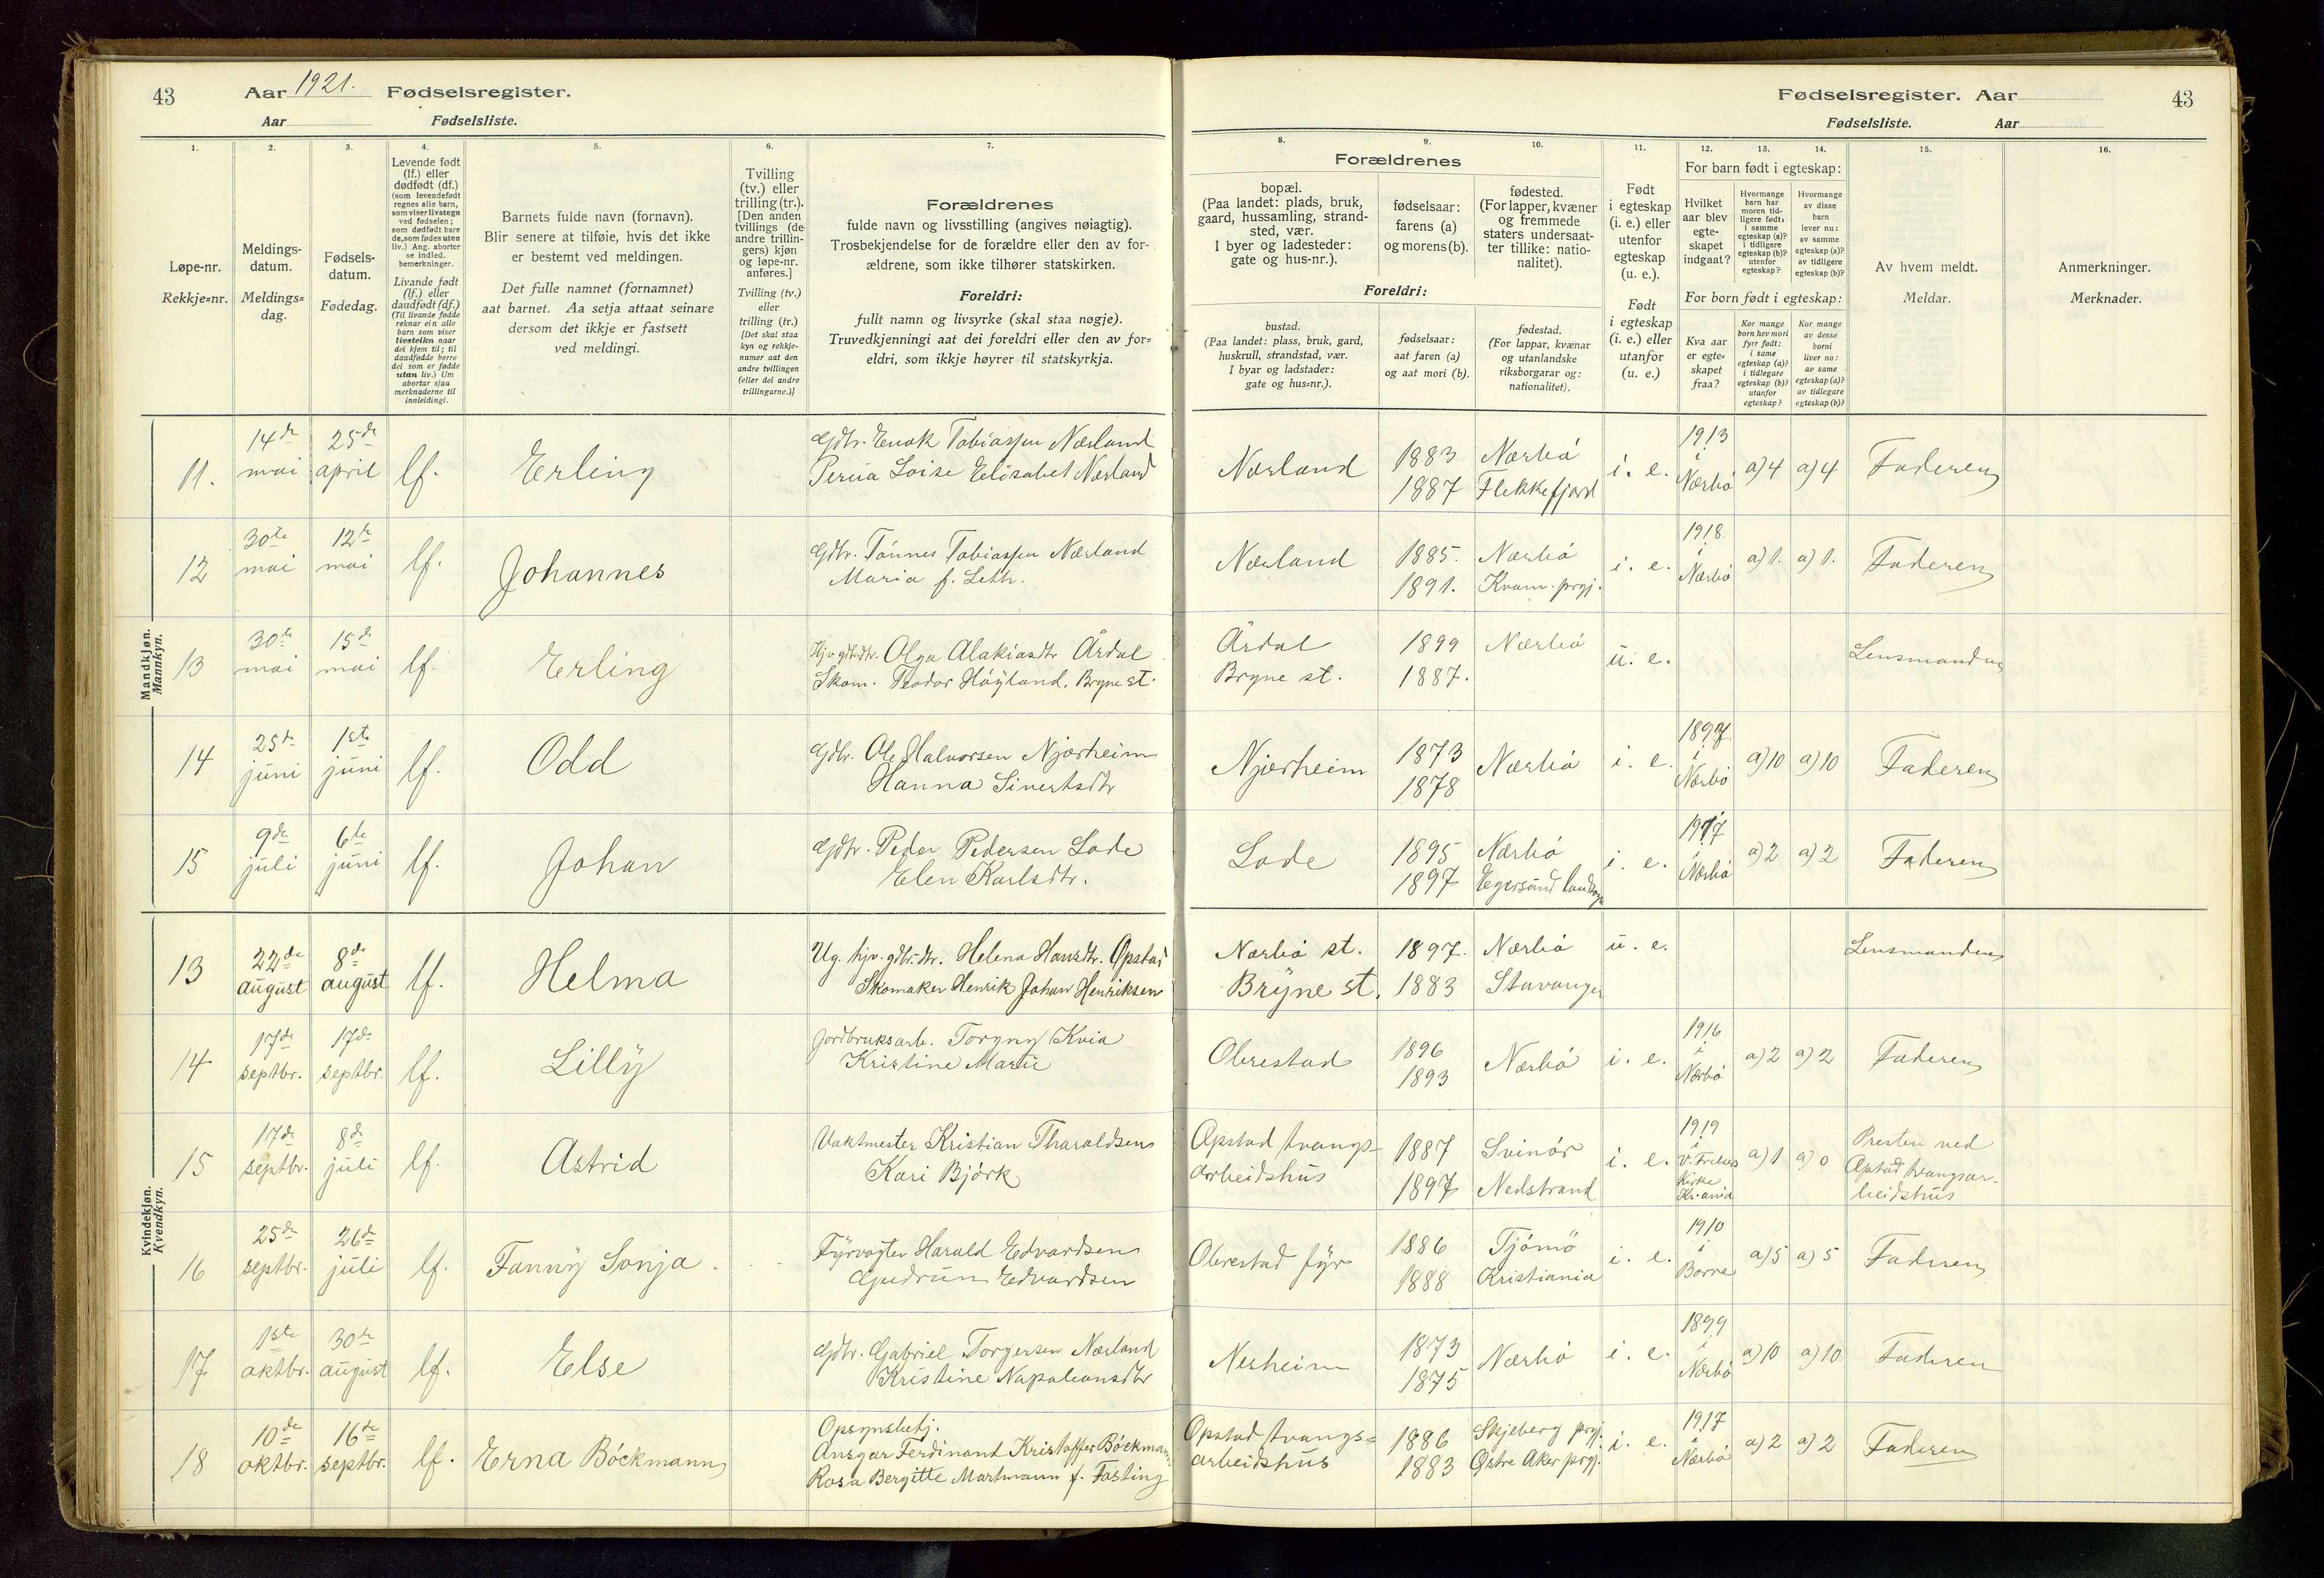 43
Aar 1921. Fødselsregister.
Aar Fødselsliste.
Fødselsregister. Aar
43
Fødselsliste. Aar
1.
2.
3.
4.
5.
6.
7.
8.
9.
10.
11.
12.
13.
14.
15.
16.
Løpe-nr.
Rekkje=nr.
Meldings-
datum.
Meldings=
dag.
Fødsels-
datum.
Fødedag.
Levende født
(lf.) eller
dødfødt (df.)
(som levendefødt
regnes alle barn,
som viser livstegn
ved fødselen;
som dødfødt bare
de, som fødes uten
liv.) Ang. aborter
se indled.
bemerkninger.
Livande født
(lf.) eller
daudfødt (df.)
(Til livande fødde
reknar ein alle
barn som viser
livsteikn naar
dei kjem til; til
daudfødde berre
dei som er fødde
utan liv.) Um
abortar sjaa
merknaderne til
innleidingi.
Barnets fulde navn (fornavn).
Blir senere at tilføie, hvis det ikke
er bestemt ved meldingen.
Det fulle namnet (fornamnet)
aat barnet. Aa setja attaat seinare
dersom det ikkje er fastsett
ved meldingi.
Tvilling
(tv.) eller
trilling (tr.).
[Den anden
tvillings (de
andre trillin-
gers) kjøn
og løpe-nr.
anføres.]
Tvilling (tv.)
eller
trilling (tr.)
[Det skal staa
kyn og rekkje-
numer aat den
andre tvillingen
(eller dei andre
trillingarne.)]
Forældrenes
fulde navn og livsstilling (angives nøiagtig).
Trosbekjendelse for de forældre eller den av for-
ældrene, som ikke tilhører statskirken.
Foreldri:
fullt namn og livsyrke (skal staa nøgje).
Truvedkjenningi aat dei foreldri eller den av for=
eldri, som ikkje høyrer til statskyrkja.
Forældrenes
bopæl.
(Paa landet: plads, bruk,
gaard, hussamling, strand-
sted, vær.
I byer og ladesteder:
gate og hus-nr.).
fødselsaar:
farens (a)
og morens (b).
fødested.
(For lapper, kvæner
og fremmede
staters undersaat-
ter tillike: natio-
nalitet).
Foreldri:
bustad.
(Paa landet: plass, bruk, gard,
huskrull, strandstad, vær.
I byar og ladstader:
gate og hus=nr.).
fødselsaar:
aat faren (a)
og aat mori (b).
fødestad.
(For lappar, kvænar
og utanlandske
riksborgarar og:
nationalitet).
Født
i egteskap
(i. e.) eller
utenfor
egteskap
(u. e.).
Født
i egteskap
(i. e.) eller
utanfor
(u. e.)
For barn født i egteskap:
Hvilket
aar blev
egte-
skapet
indgaat?
Hvormange
barn har
moren tid-
ligere født:
i samme
egteskap (a)?
i tidligere
egteskap (b)?
utenfor
egteskap?
Hvormange
av disse
barn
lever nu:
av samme
egteskap (a)?
av tidligere
egteskap (b)?
For born født i egteskap:
Kva aar
er egte=
skapet
fraa?
Kor mange
born hev mori
fyrr født:
i same
egteskap (a)?
i tidlegare
egteskap (b)?
utanfor
egteskap?
Kor mange
av desse
borni
liver no:
av same
egteskap (a)?
av tidlegare
egteskap (b)?
Av hvem meldt.
Meldar.
Anmerkninger.
Merknader.
Mandkjøn.
Mannkyn.
11. 14de mai 25de april lf. Erling
Gdbr. Enok Tobiassen Nærland
Loise Elisabet Nærland
Nærland 1883 1887 Nærbö Flekkefjord i. e. 1913 i Nærbö a) 4 a) 4 Faderen
12 30te mai 12te mai lf. Johannes
Gdbr. Tönnes Tobiassen Nærland
Maria f. Leth.
Nærland 1885. 1891. Nærbö Kvam. prgj. i. e. 1918. i Nærbö a) 1. a) 1. Faderen
13 30te mai 15de mai lf. Erling
Hjv. gdbr.dtr. Olga Alakiasdtr Årdal
Skom. Teodor Höyland. Bryne st.
Årdal Bryne st. 1899 1887. Nærbö u. e. Lensmanden
14 25te juni 1ste juni lf. Odd
Gdbr. Ole Halvorsen Njærheim
Hanna Sivertsdtr
Njærheim 1873 1878 Nærbö i. e. 1897 i Nærbö a) 10 a) 10 Faderen
15 9de juli 6te juni lf. Johan
Gdbr. Peder Pedersen Lode
Elen Karlsdtr.
Lode 1895 1897 Nærbö Egersund landsogn i. e. 1917 i Nærbö a) 2 a) 2 Faderen
Kvindekjøn.
Kvendkyn.
13 22de august 8de august lf. Helma
Ug. hjv. gdbr.dtr. Helena Hansdtr. Opstad
Skomaker Henrik Johan Henriksen
Nærbö st. Bryne st. 1897. 1883 Nærbö Stavanger u. e. Lensmanden
14 17de septbr. 17de septbr. lf. Lilly
Jordbruksarb. Torgny Kvia
Kristine Marie
Obrestad 1896 1893 Nærbö i. e. 1916 i Nærbö a) 2 a) 2 Faderen
15 17de septbr. 8de juli lf. Astrid
Vaktmester Kristian Tharaldsen
Kari Björk
Opstad tvangs-
arbeidshus 1887 1897 Svinör Nedstrand i. e. 1919 i V. Frelsers Kirke Kr.ania a) 1 a) 0 Presten ved
Opstad tvangsar-
beidshus
16 25de septbr. 26de juli lf. Fanny Sonja
Fyrvogter Harald Edvardsen
Gudrun Edvardsen
Obrestad fyr 1886 1888 Tjömö Kristiania i. e. 1910 i Borre a) 5 a) 5 Faderen
17 1ste oktbr. 30te august lf. Else
Gdbr. Gabriel Torgersen Nærland
Kristine Napoleonsdtr
Nerheim 1873 1875 Nærbö i. e. 1899 i Nærbö a) 10 a) 10 Faderen
18 10de oktbr. 16de septbr. lf. Erna Böckmann
Opsynsbetj.
Ansgar Ferdinant Kristoffer Böckmann
Rosa Bergitte Martmann f. Fasting
Opstad tvangs=
arbeidshus 1886 1883 Skjeberg prgj. Östre Aker prgj. i. e. 1917 i Nærbö a) 2 a) 2 Faderen